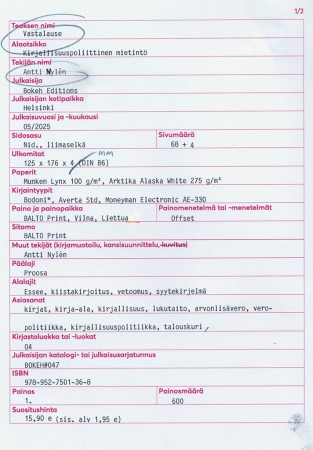 1/2
Teoksen nimi
Vastalause
Alaotsikko
Kirjallisuuspoliittinen mietintö
Tekijän nimi
Antti Nylén
Julkaisija
Bokeh Editions
Julkaisijan kotipaikka
Helsinki
Julkaisuvuosi ja -kuukausi
05/2025
Sidosasu Sivumäärä
Nid., liimaselkä 68 + 4
Ulkomitat
125 x 176 x 4 (DIN B6) mm
Paperit
Munken Lynx 100 g/m², Arktika Alaska White 275 g/m²
Kirjaintyypit
Bodoni*, Averta Std, Moneyman Electronic AE-330
Paino ja painopaikka Painomenetelmä tai -menetelmät
BALTO Print, Vilna, Liettua Offset
Sitomo
BALTO Print
Muut tekijät (kirjamuotoilu, kansisuunnittelu, kuvitus)
Antti Nylén
Päälaji
Proosa
Alalajit
Essee, kiistakirjoitus, vetoomus, syytekirjelmä
Asiasanat
kirjat, kirja-ala, kirjallisuus, lukutaito, arvonlisävero, vero-
politiikka, kirjallisuuspolitiikka, talouskuri,
Kirjastoluokka tai -luokat
04
Julkaisijan katalogi- tai julkaisusarjatunnus
BOKEH#047
ISBN
978-952-7501-36-8
Painos Painosmäärä
1. 600
Suositushinta
15,90 e (sis. alv 1,95 e)